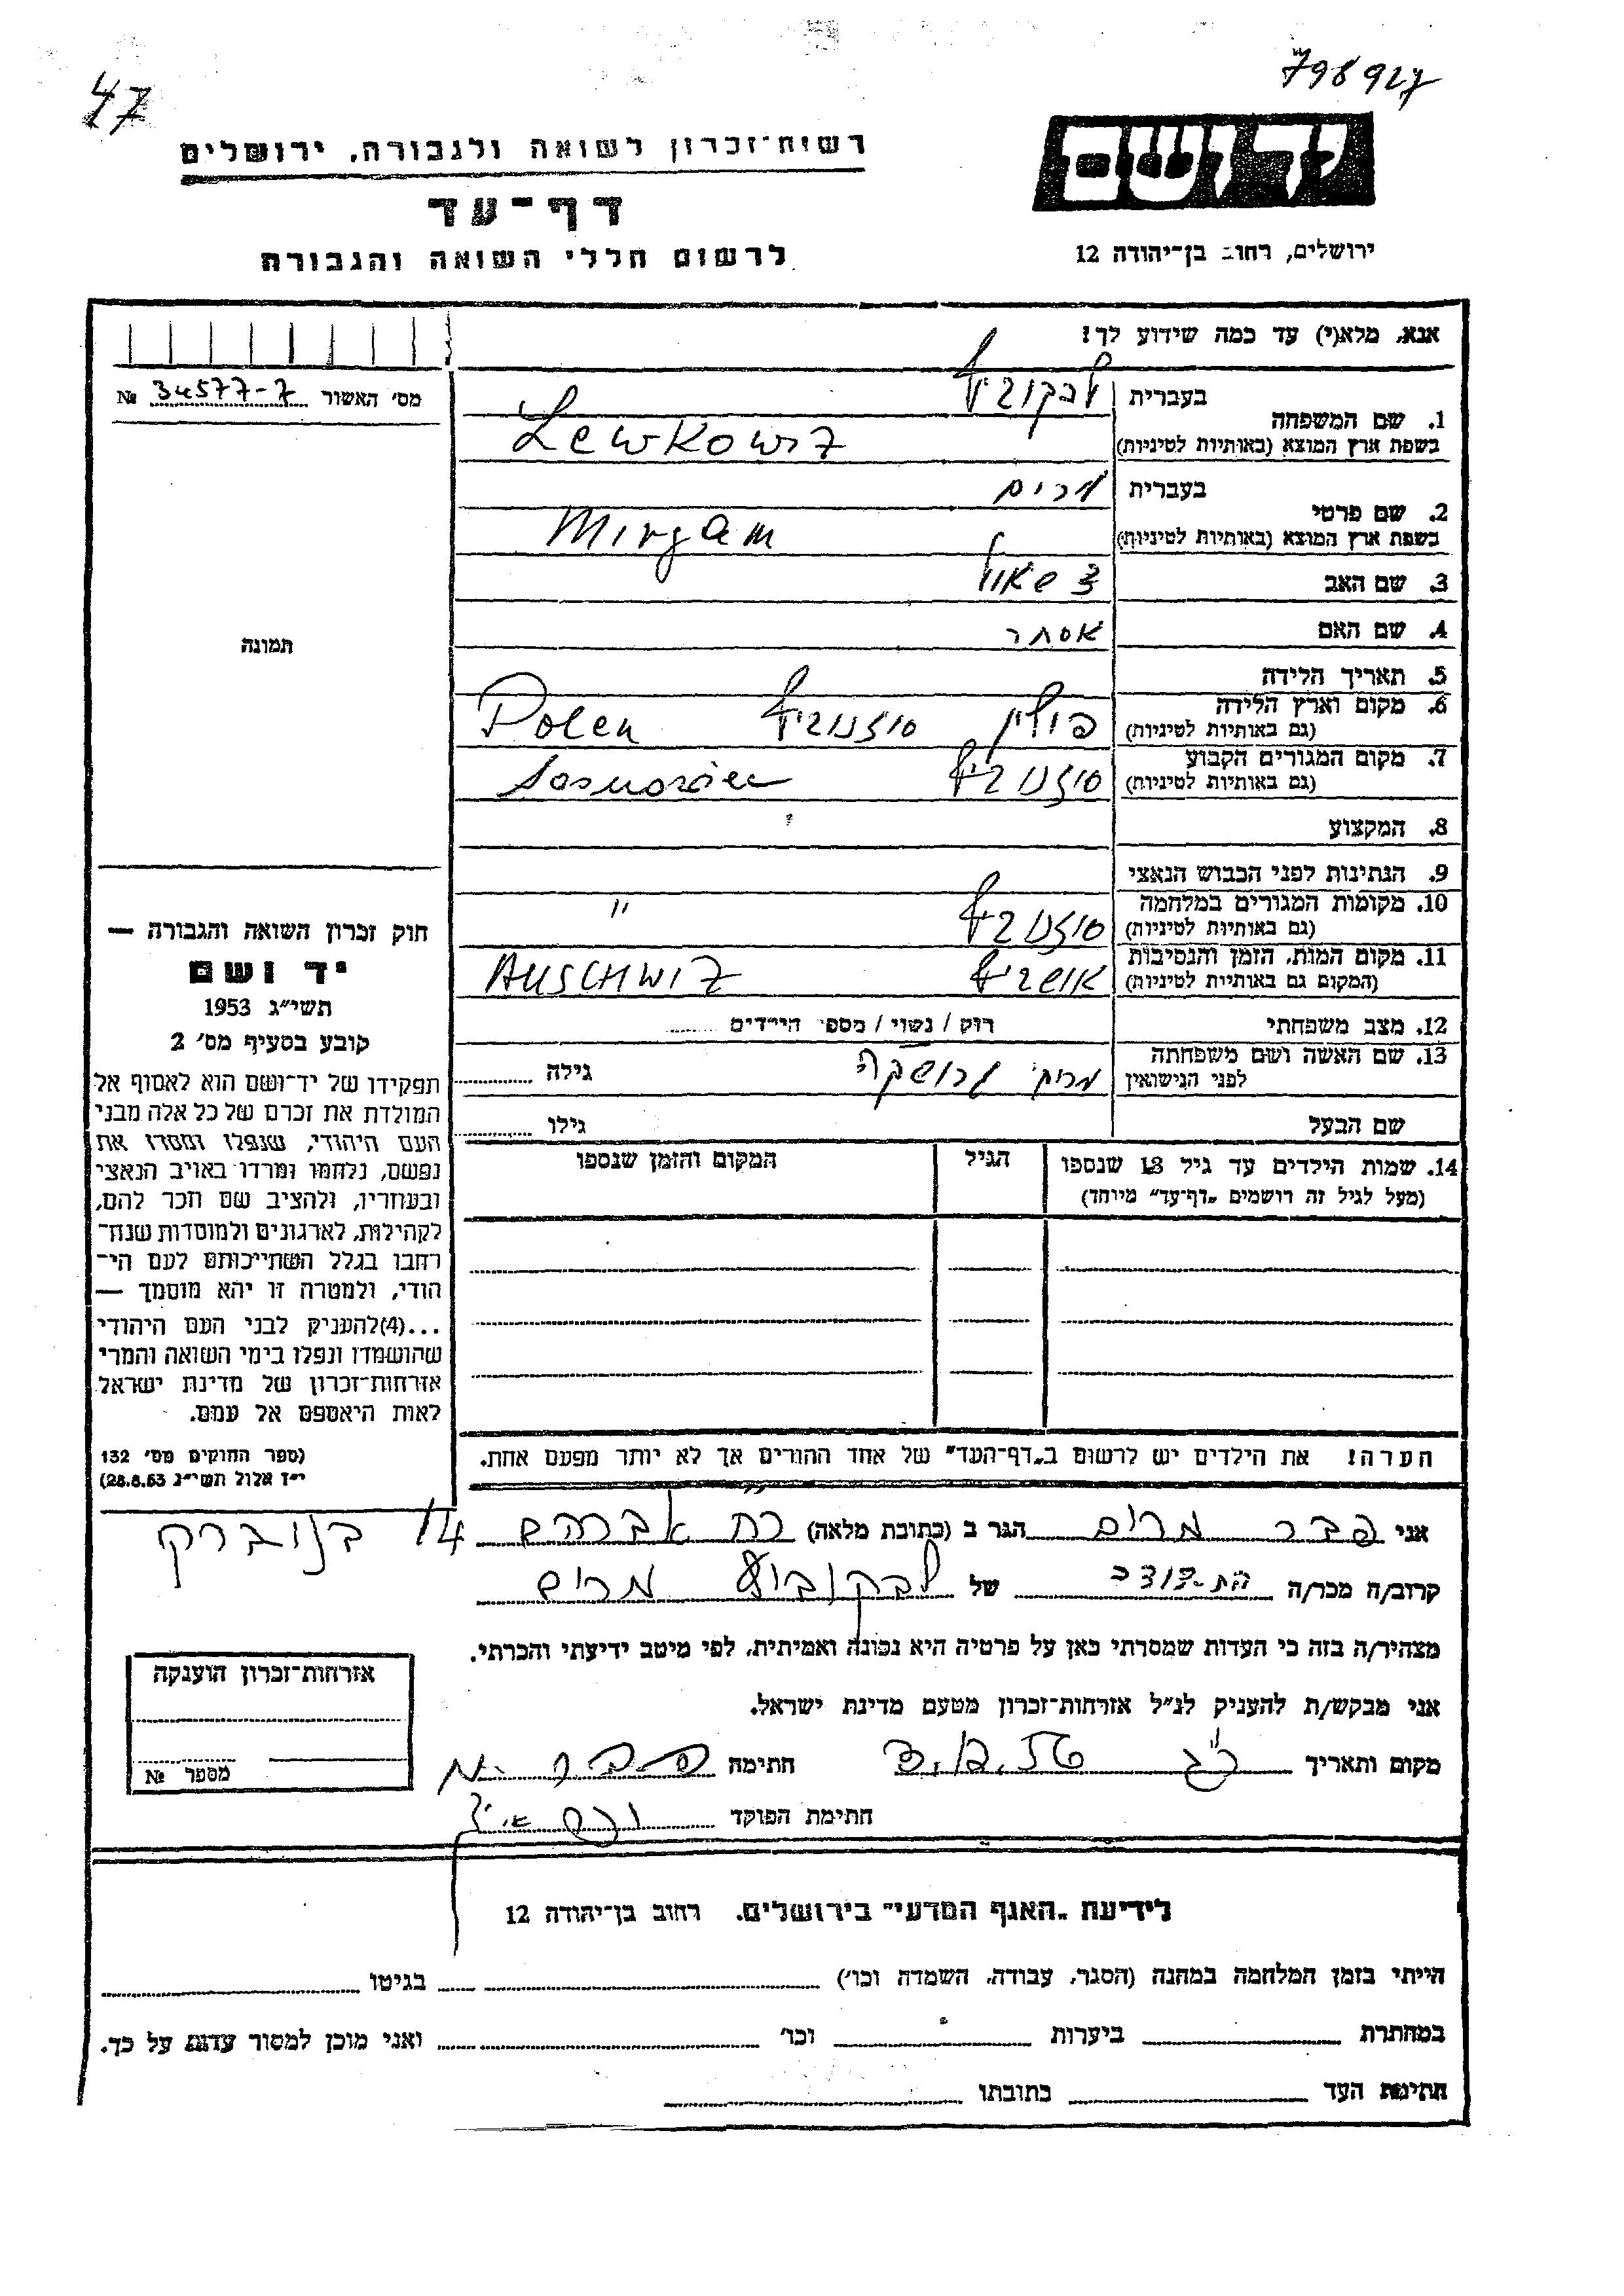 47
798927
רשות־זכרון לשואה ולגבורה, ירושלים
יד ושם
דף־עד
לרשום חללי השואה והגבורה
ירושלים, רחוב בן־יהודה 12
אנא, מלא(י) עד כמה שידוע לך!
מס' האשור 34577-7 №
תמונה
1. שם המשפחה
בעברית לבקוביץ
בשפת ארץ המוצא (באותיות לטיניות) Lewkowiz
2. שם פרטי
בעברית מרים
בשפת ארץ המוצא (באותיות לטיניות) Mirjam
3. שם האב שאול
4. שם האם אסתר
5. תאריך הלידה
6. מקום וארץ הלידה פולין סוזנוביץ Polen
(גם באותיות לטיניות)
7. מקום המגורים הקבוע סוזנוביץ
(גם באותיות לטיניות)
8. המקצוע
9. הנתינות לפני הכבוש הנאצי
10. מקומות המגורים במלחמה סוזנוביץ "
(גם באותיות לטיניות)
11. מקום המות, הזמן והנסיבות אושביץ AUSCHWIZ
(המקום גם באותיות לטיניות)
12. מצב משפחתי רוק / נשוי / מספר הילדים
13. שם האשה ושם משפחתה גילה
לפני הנישואין
שם הבעל גילו
14. שמות הילדים עד גיל 18 שנספו הגיל המקום והזמן שנספו
(מעל לגיל זה רושמים „דף־עד" מיוחד)
הערה! את הילדים יש לרשום ב„דף־העד" של אחד ההורים אך לא יותר מפעם אחת.
חוק זכרון השואה והגבורה —
יד ושם
תשי"ג 1953
קובע בסעיף מס' 2
תפקידו של יד־ושם הוא לאסוף אל
המולדת את זכרם של כל אלה מבני
העם היהודי, שנפלו ומסרו את
נפשם, נלחמו ומרדו באויב הנאצי
ובעוזריו, ולהציב שם וזכר להם,
לקהילות, לארגונים ולמוסדות שנח־
רבו בגלל השתייכותם לעם הי־
הודי, ולמטרה זו יהא מוסמך —
...(4)להעניק לבני העם היהודי
שהושמדו ונפלו בימי השואה והמרי
אזרחות־זכרון של מדינת ישראל
לאות היאספם אל עמם.
(ספר החוקים מס' 132
י"ז אלול תשי"ג 28.8.53)
אני פבר מרים הגר ב (כתובת מלאה) אברהם 14 בנוברק
קרוב/ה מכר/ה של לבקוביץ מרים
מצהיר/ה בזה כי העדות שמסרתי כאן על פרטיה היא נכונה ואמיתית, לפי מיטב ידיעתי והכרתי.
אני מבקש/ת להעניק לנ"ל אזרחות־זכרון מטעם מדינת ישראל.
מקום ותאריך חתימה פבר מ
חתימת הפוקד
אזרחות־זכרון הוענקה
מספר №
לידיעת „האגף המדעי" בירושלים, רחוב בן־יהודה 12
הייתי בזמן המלחמה במחנה (הסגר, עבודה, השמדה וכו') בגיטו
במחתרת ביערות וכו' ואני מוכן למסור עדות על כך.
חתימת העד כתובתו